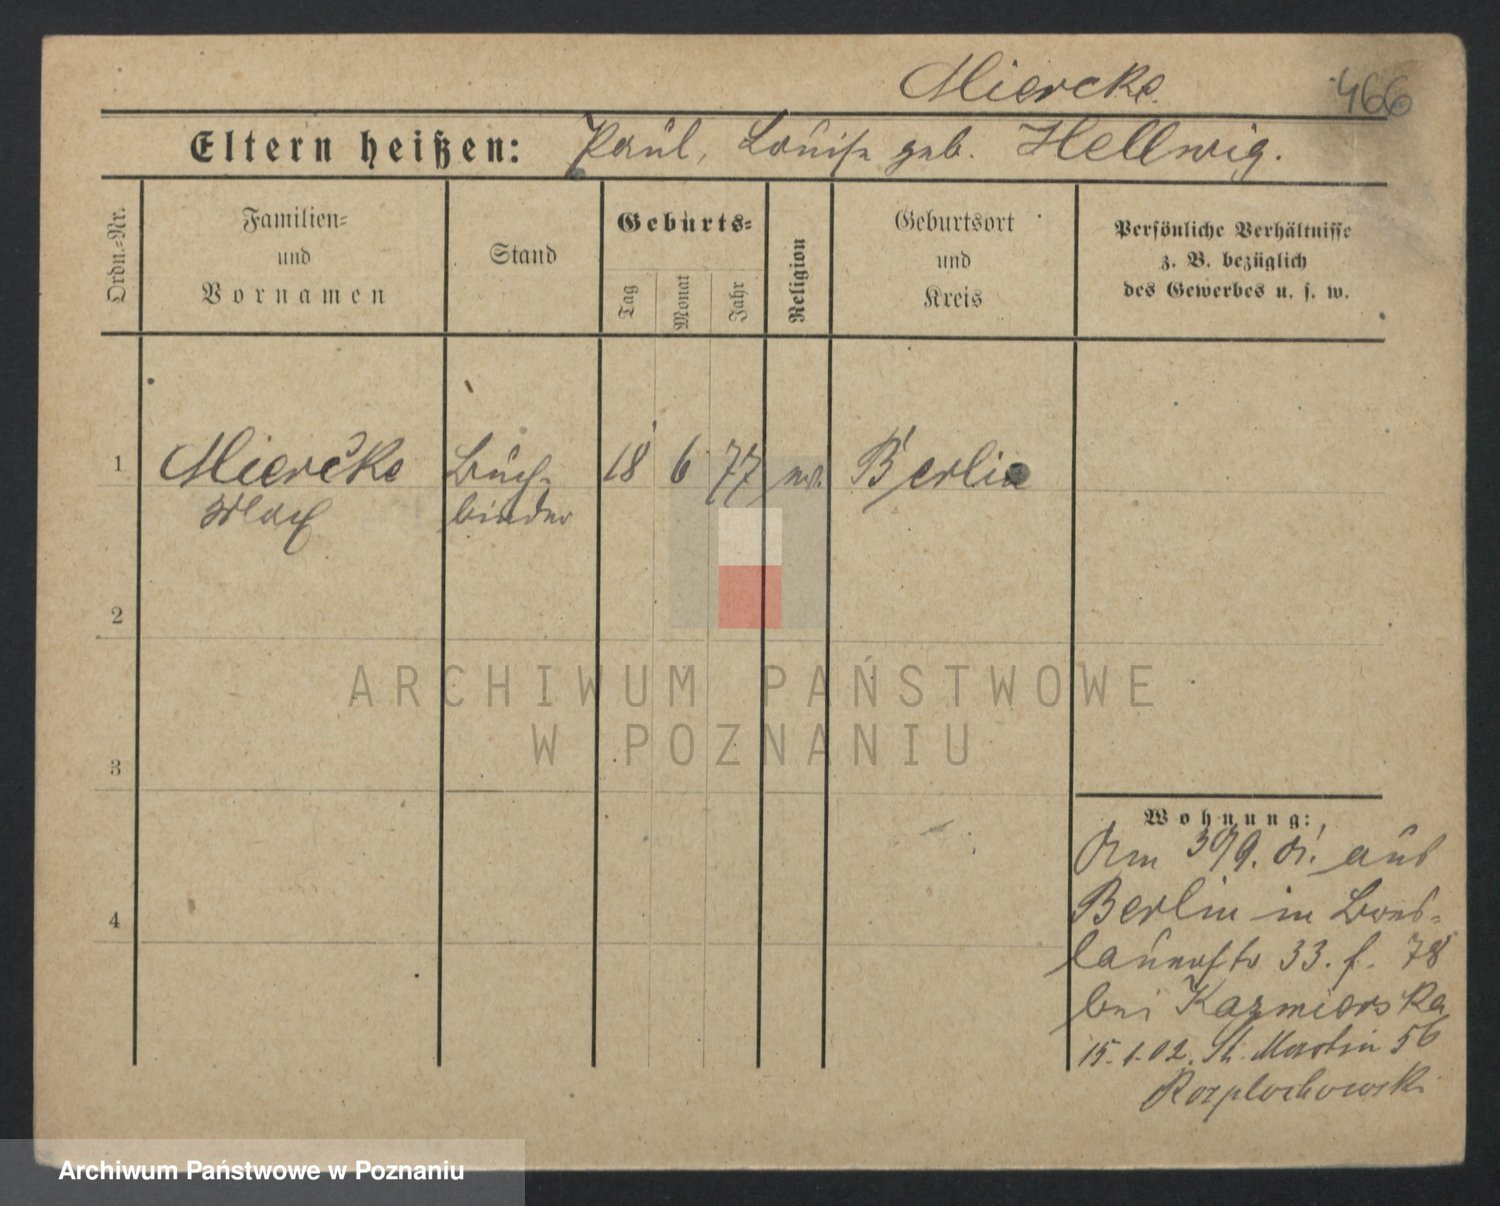 Miercke
466
Eltern heißen: Paul, Louise geb. Hellwig.
Ordn.=Nr.
Familien=
und
Vornamen
Stand
Geburts=
Tag
Monat
Jahr
Religion
Geburtsort
und
Kreis
Persönliche Verhältnisse
z. B. bezüglich
des Gewerbes u. s. w.
1 Miercke Buch= 18 6 77 ev. Berlin
Max binder
2
3
4
Wohnung:
Am 30/9. 01. aus
Berlin in Bres=
lauerstr 33. f. 78
bei Kazmierska
15.1.02. St. Martin 56
Rozplochowski
ARCHIWUM PAŃSTWOWE
W POZNANIU
Archiwum Państwowe w Poznaniu